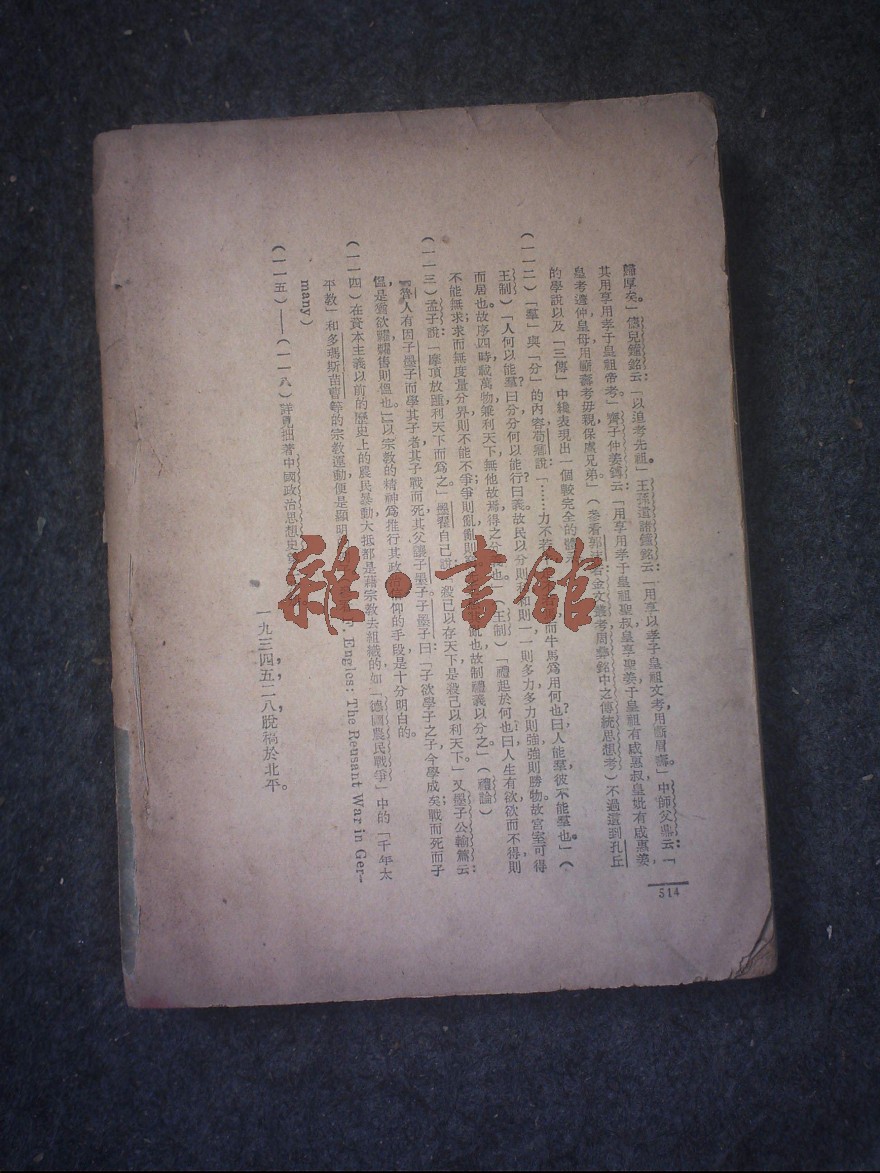 歸厚矣。」儔兒鐘銘云:「以追孝先祖。」王孫遺諸鐘銘云:「用享以孝于皇祖文考用蘄眉壽。」中師父鼎云:「
其用享用孝于皇祖帝考。」齊子仲姜鎛云:「用享用孝于皇祖聖叔皇享聖姜于皇祖有成惠叔皇妣有成惠姜
皇考遵仲皇母用蘄壽考毋死保虞兄弟。」(參看郭沫若金文叢考周彝銘中之傳統思想考)不過這到孔丘
的學說以及「三傳」中纔表現出一個較完全的體
(一一二)「羣」與「分」的內容荀卿說:「……力不若 而牛馬爲用何也?曰人能羣彼不能羣也」(
王制)「人何以能羣?曰分分何以能行?曰義。故義以分則和和則一一則多力多力則強強則勝物故宮室可得
而居也。故序四時載萬物兼利天下無他故焉得之分義也。」(王制)「禮起於何也?曰人生有欲欲而不得則
不能無求求而無度量分界則不能不爭爭則亂亂則窮 亂也故制禮義以分之」(禮論)
(一一三)孟子說「摩頂放踵利天下而爲之。」墨翟自己說:「殺己以存天下是殺己以利天下。」又墨子公輸篇云:
「魯人有因子墨子而學其子者其子戰而死其父讓子墨子子墨子曰:「子欲學子之子今學成矣;戰而死而子
慍是猶欲糶糶售則慍也。」」以宗教的精神爲推行其政治信仰的手段是十分明白的。
(一一四)在資本主義以前的歷史上的農民暴動大抵都是藉宗教去組織的如「德國農民戰爭」中的「千年太
平教」和多瑪斯苗曹等的宗教運動便是顯明 F. Engles: The Reusant War in Ger-
many)
(一一五)——(一一八)詳見拙著中國政治思想史
一九三四,五,二八,脫稿於北平。
514
雜·書館